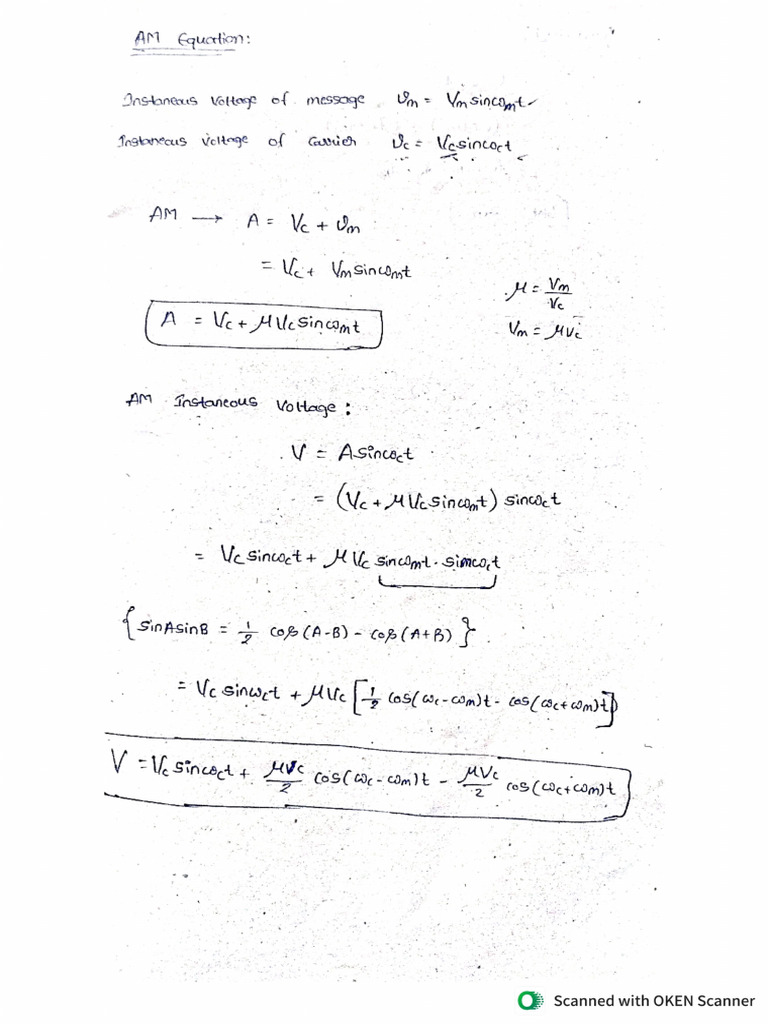 AM Equation:
Instaneous Voltage of message 𝑣m = Vm sinωmt
Instaneous Voltage of Carrier 𝑣c = Vc sinωct
AM → A = Vc + 𝑣m
= Vc + Vm sinωmt
μ = Vm/Vc
A = Vc + μVc sinωmt
Vm = μVc
AM Instaneous Voltage :
V = A sinωct
= (Vc + μVc sinωmt) sinωct
= Vc sinωct + μVc sinωmt . sinωct
{ sinA sinB = 1/2 cos(A-B) - cos(A+B) }
= Vc sinωct + μVc [ 1/2 cos(ωc-ωm)t - cos(ωc+ωm)t ]
V = Vc sinωct + μVc/2 cos(ωc-ωm)t - μVc/2 cos(ωc+ωm)t
Scanned with OKEN Scanner